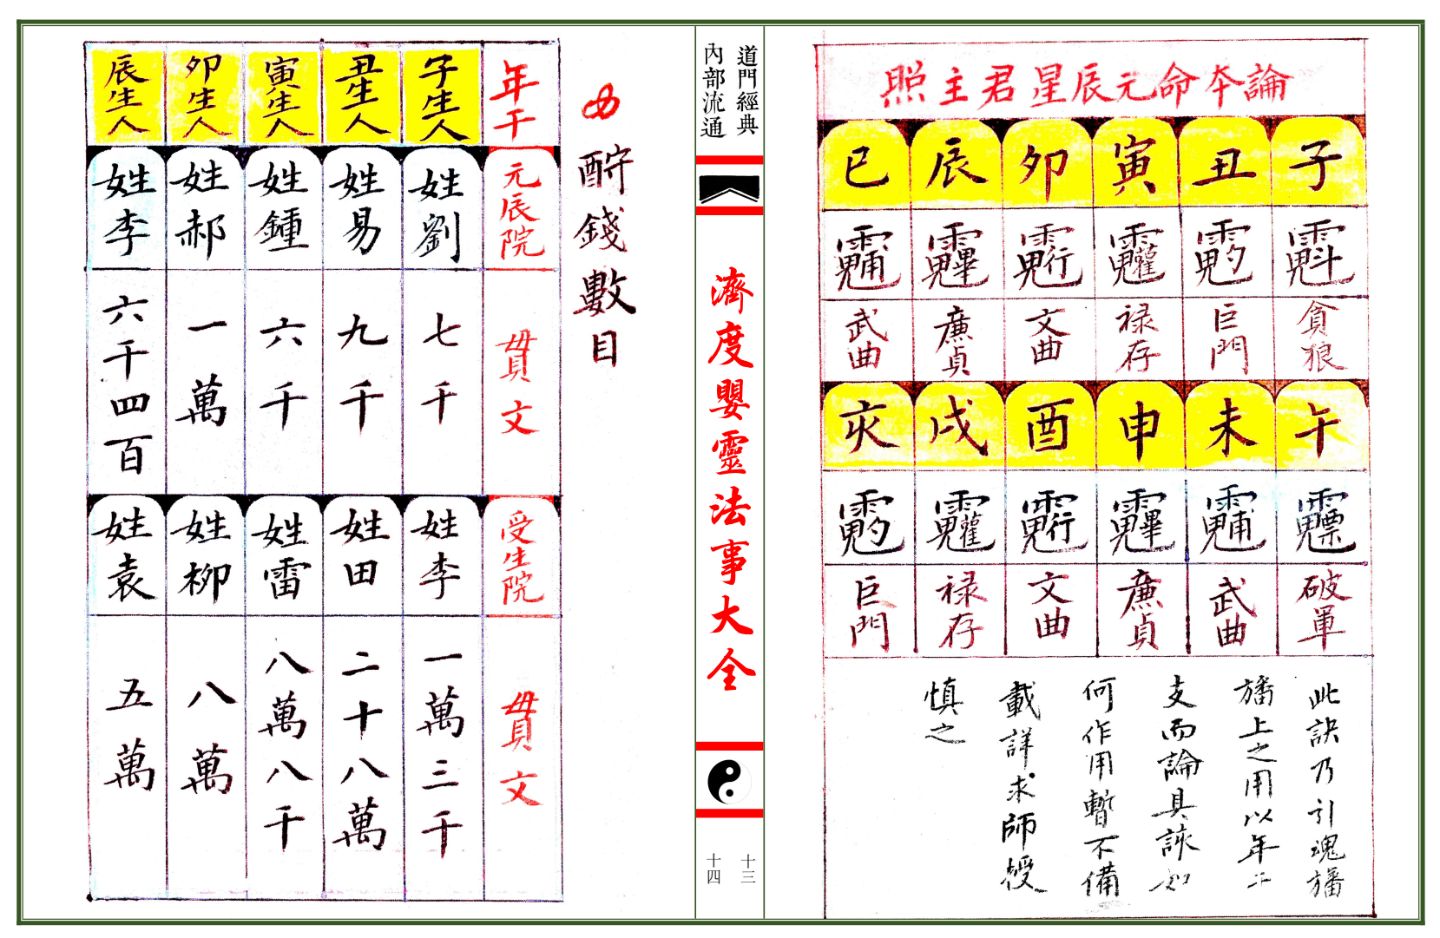 論本命元辰星君主照
子 丑 寅 卯 辰 巳
貪狼 巨門 禄存 文曲 廉貞 武曲
午 未 申 酉 戌 亥
破軍 武曲 廉貞 文曲 禄存 巨門
此訣乃引魂旛
旛上之用以年
支而論具
何作用暫不備
載詳求師授
慎之
道門經典
內部流通
濟度嬰靈法事大全
十三
十四
錢數目
年干 子生人 丑生人 寅生人 卯生人 辰生人
元辰院 姓劉 姓易 姓鍾 姓郝 姓李
貫文 七千 九千 六千 一萬 六千四百
受生院 姓李 姓田 姓雷 姓柳 姓袁
貫文 一萬三千 二十八萬 八萬八千 八萬 五萬